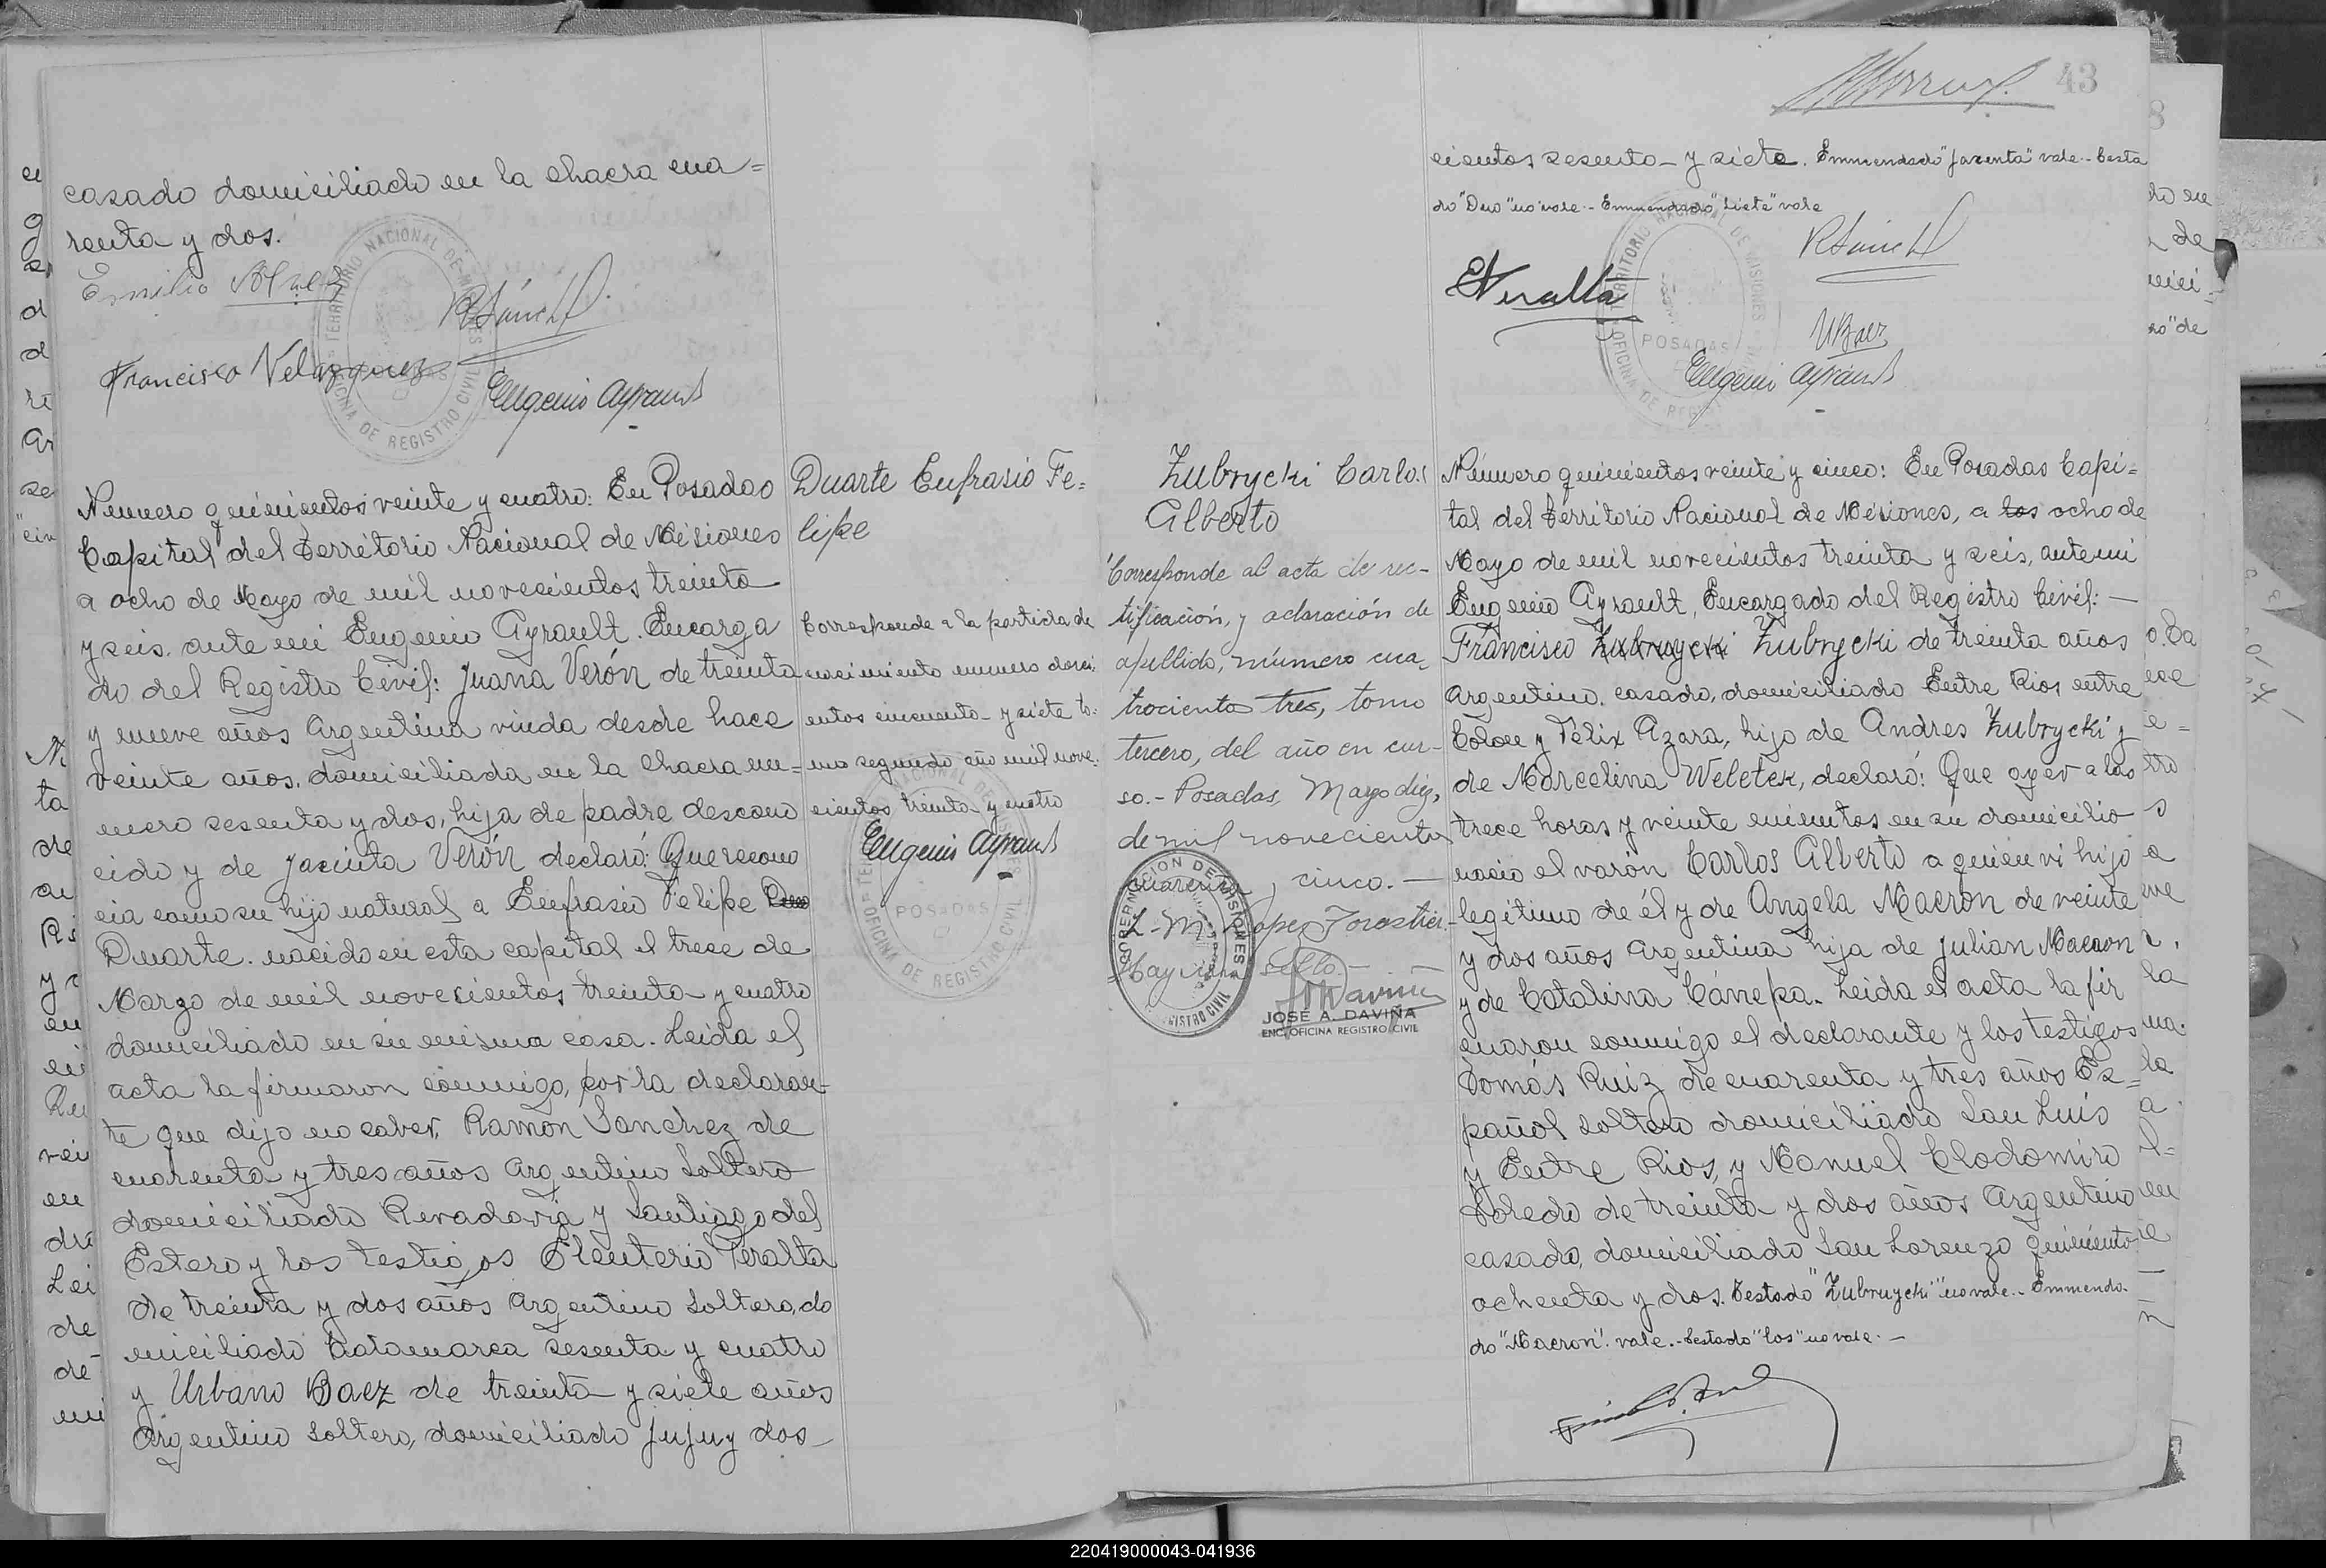 casado domiciliado en la chacra cua=
renta y dos.
Emilio
RSánch
Francisco Velazquez
Eugenio Ayrault
TERRITORIO NACIONAL DE MISIONES
OFICINA DE REGISTRO CIVIL
Número quinientos veinte y cuatro: En Posadas
Capital del Territorio Nacional de Misiones
a ocho de Mayo de mil novecientos treinta
y seis, ante mi Eugenio Ayrault. Encarga
do del Registro Civil: Juana Verón de treinta
y nueve años Argentina viuda desde hace
veinte años, domiciliada en la chacra nu=
mero sesenta y dos, hija de padre descono
cido y de Jacinta Verón declaró: Que recono
cia como su hijo natural a Eufrasio Felipe Duo
Duarte. nacido en esta capital el trece de
Marzo de mil novecientos treinta y cuatro
domiciliado en su misma casa. Leida el
acta la firmaron conmigo, por la declaran-
te que dijo no saber, Ramón Sanchez de
cuarenta y tres años Argentino Soltero
domiciliado Rivadavia y Santiago del
Estero y los testigos Eleuterio Peralta
de treinta y dos años Argentino Soltero, do
miciliado Catamarca sesenta y cuatro
y Urbano Baez de treinta y siete años
Argentino Soltero, domiciliado Jujuy dos_
Duarte Eufrasio Fe=
lipe
Corresponde a la partida de
nacimiento número dosci
entos cincuenta y siete to=
mo segundo año mil nove=
cientos treinta y cuatro
Eugenio Ayrault
POSADAS
OFICINA DE REGISTRO CIVIL
43
cientos sesenta y siete. Enmendado "Jacinta" vale.- Testa
do "Duo" no vale.- Enmendado "siete" vale
RSánch
EPeralta
UBaez
Eugenio Ayrault
TERRITORIO NACIONAL DE MISIONES
POSADAS
OFICINA DE REGISTRO CIVIL
Zubrycki Carlos
Alberto
Corresponde al acta de rec-
tificación, y aclaración de
apellido, número cua_
trocientos tres, tomo
tercero, del año en cur-
so.- Posadas, Mayo diez,
de mil novecientos
cuarenta y cinco.—
L. M. Lopez Forastier.-
Hay un sello.—
GOBERNACION DE MISIONES
REGISTRO CIVIL
JOSE A. DAVIÑA
ENC. OFICINA REGISTRO CIVIL
Número quinientos veinte y cinco: En Posadas Capi=
tal del Territorio Nacional de Misiones, a los ocho de
Mayo de mil novecientos treinta y seis, ante mi
Eugenio Ayrault, Encargado del Registro Civil:—
Francisco Zubruycki Zubrycki de treinta años
Argentino, casado, domiciliado Entre Rios entre
Colon y Félix Azara, hijo de Andres Zubrycki y
de Marcelina Weletek, declaró: Que ayer a las
trece horas y veinte minutos en su domicilio
nacio el varón Carlos Alberto a quien vi hijo
legitimo de él y de Angela Macron de veinte
y dos años Argentina hija de Julian Macron
y de Catalina Cánepa. Leida el acta la fir
maron conmigo el declarante y los testigos
Tomás Ruiz de cuarenta y tres años Es=
pañol soltero domiciliado San Luis
y Entre Rios, y Manuel Clodomiro
Toledo de treinta y dos años Argentino
casado, domiciliado San Lorenzo quinientos
ochenta y dos. Testado "Zubruycki" no vale.- Enmenda-
do "Macron". vale.- Testado "los" no vale.—
220419000043-041936